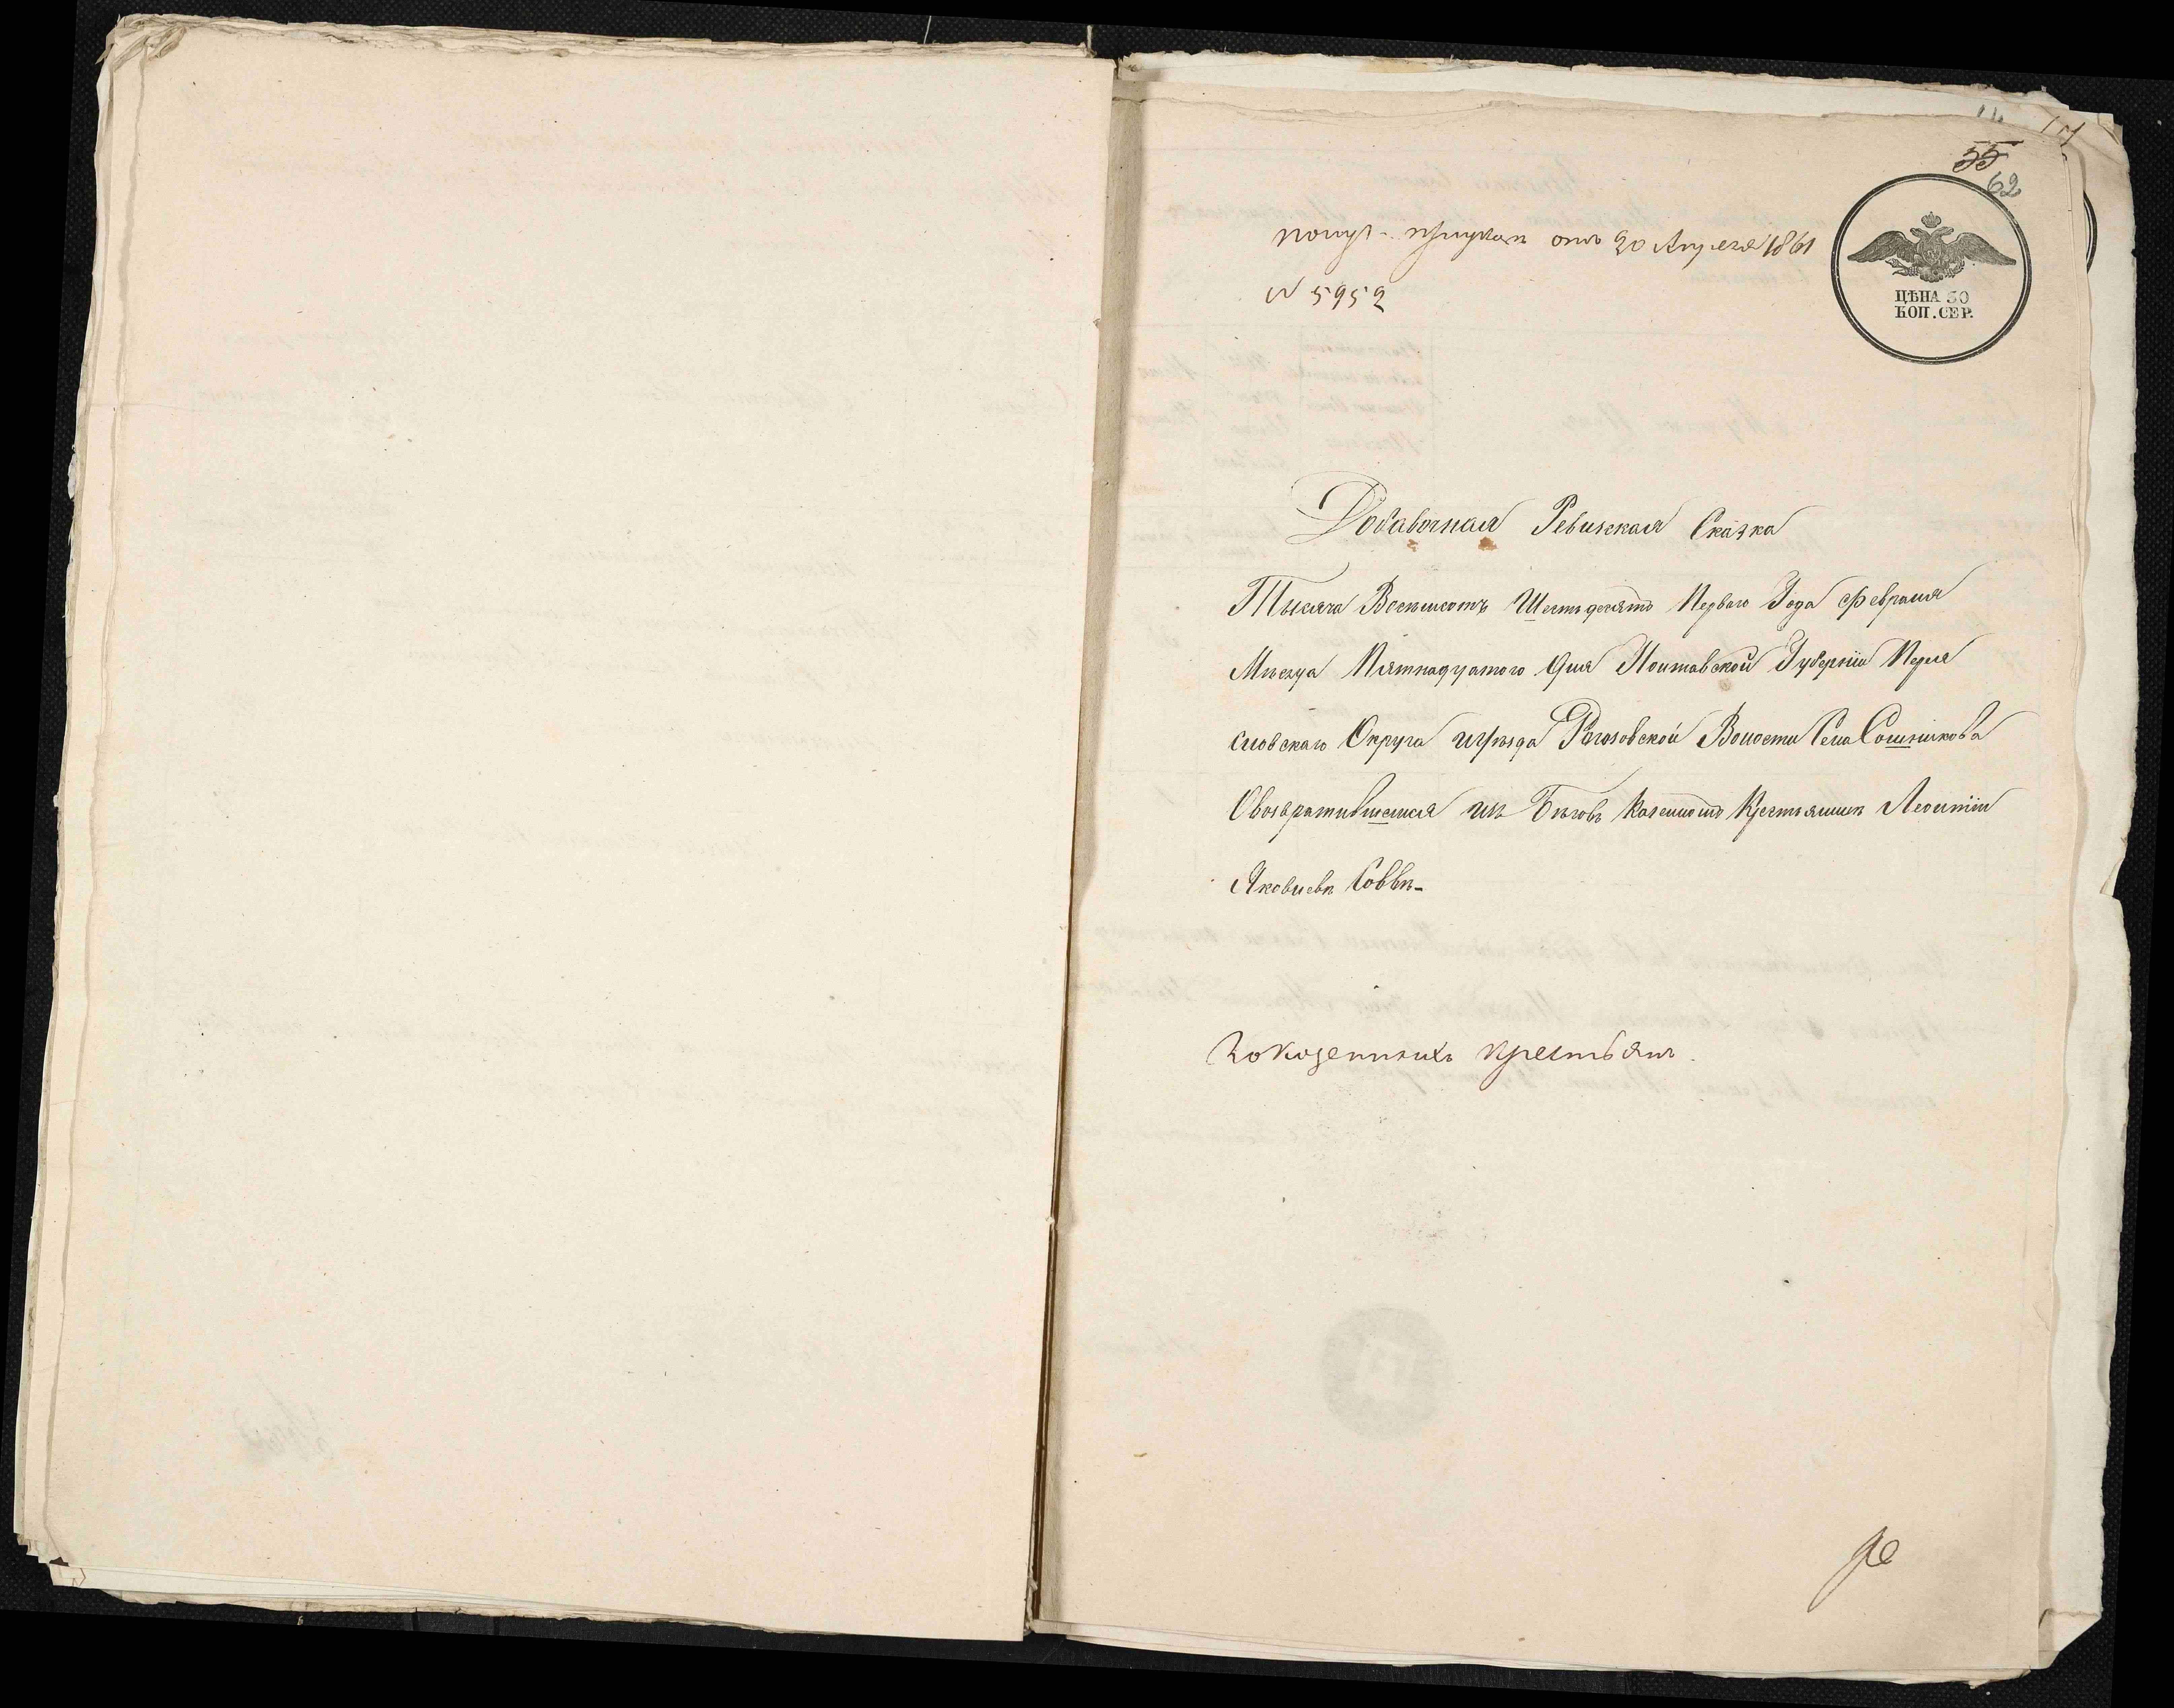 17
55
62
ЦѢНА 30
КОП. СЕР.
получ. при указѣ отъ 20 Апреля 1861
N 5952
Добавочная Ревизская Сказка
Тысяча Восемьсотъ Шестьдесятъ Перваго Года Февраля
Мѣсяца Пятнадцатого Дня Полтавской Губернiи Перея
словскаго Округа и уѣзда Рогозовской Волости Села Сошникова
О возвратившемся изъ Бѣговъ Казенномъ Крестьянинѣ Леонтiи
Яковлевѣ Саввѣ-
Казенныхъ крестьянъ.